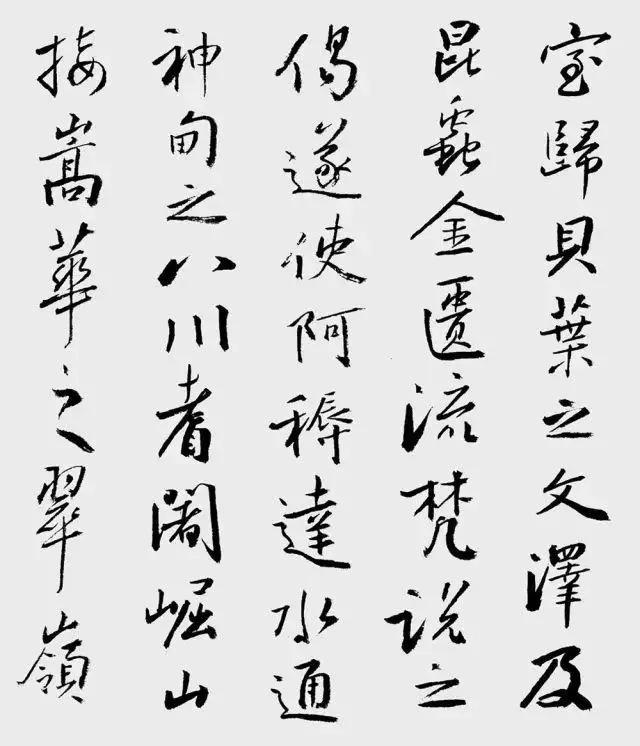 室歸貝葉之文澤及
昆蟲金匱流梵說之
偈遂使阿耨達水通
神甸之八川耆闍崛山
接嵩華之翠嶺